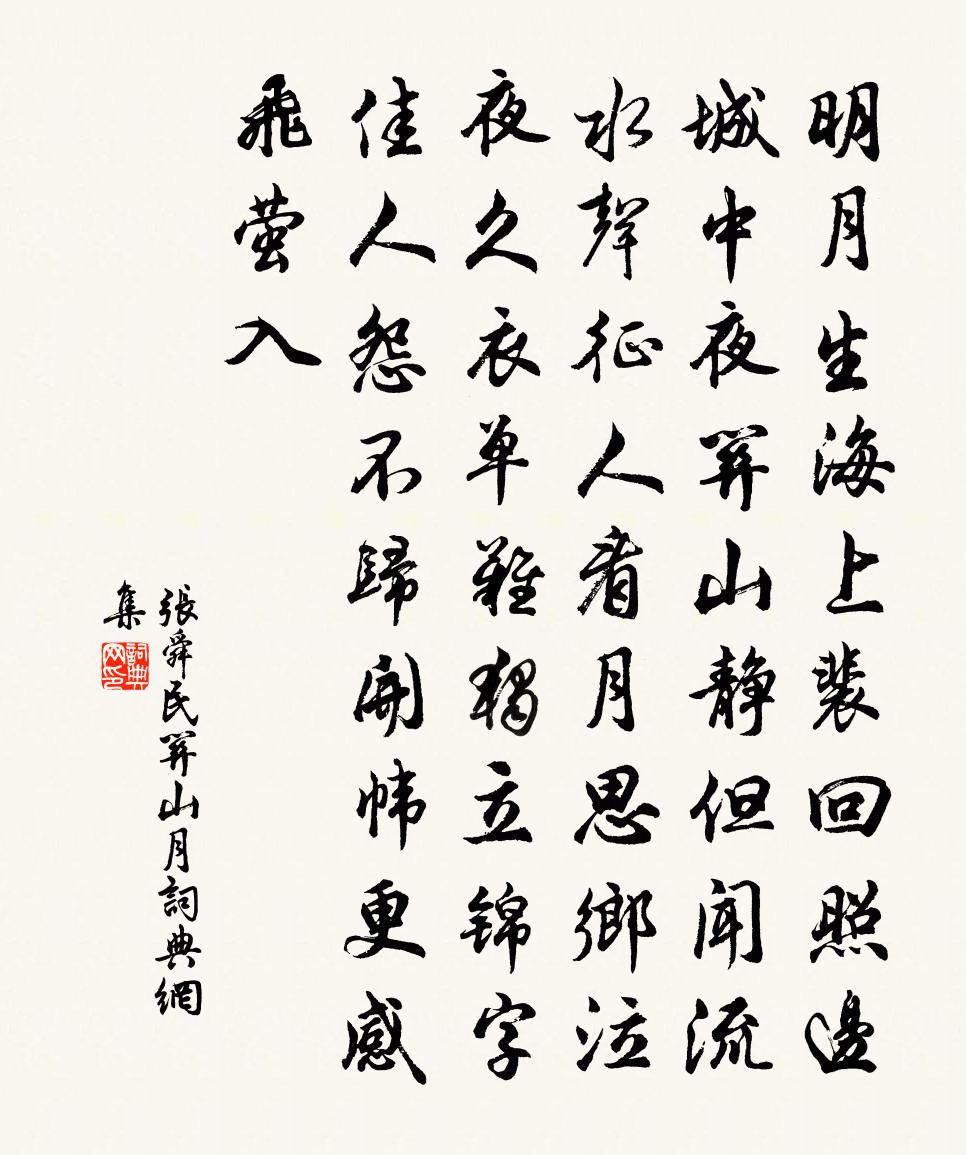 明月生海上裴回照邊
城中夜關山静但聞流
水聲征人看月思鄉泣
夜久衣单難獨立錦字
佳人怨不歸開幃更感
飛萤入
張舜民關山月詞典網
集
詞典
网印